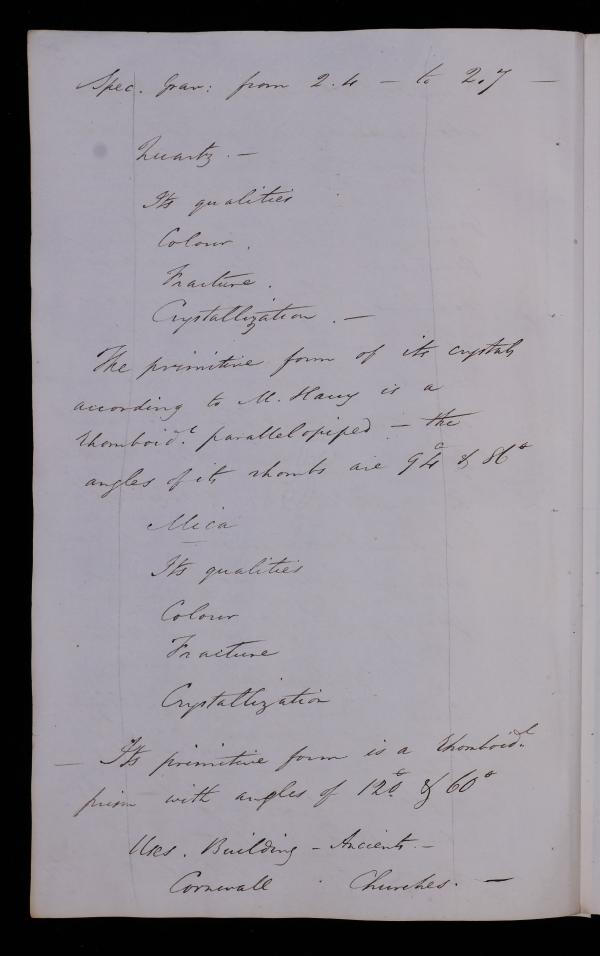 Spec. Grav: from 2.4 — to 2.7 —
Quartz. —
Its qualities
Colour.
Fracture.
Crystallization. —
The primitive form of its crystals
according to M. Hauy is a
rhomboidl. parallelopiped — the
angles of its rhombs are 94° & 86°
Mica
Its qualities
Colour
Fracture
Crystallization
— Its primitive form is a rhomboidl.
prism with angles of 120° & 60°
Uses. Building – Ancients. –
Cornwall . Churches. —